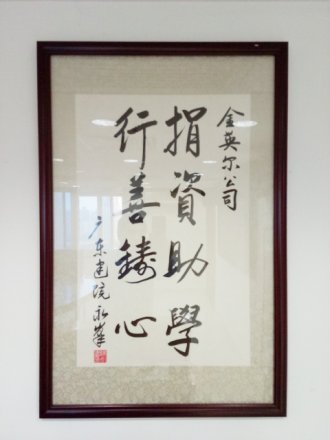 金英尔公司
捐資助學
行善鑄心
广东建院永華